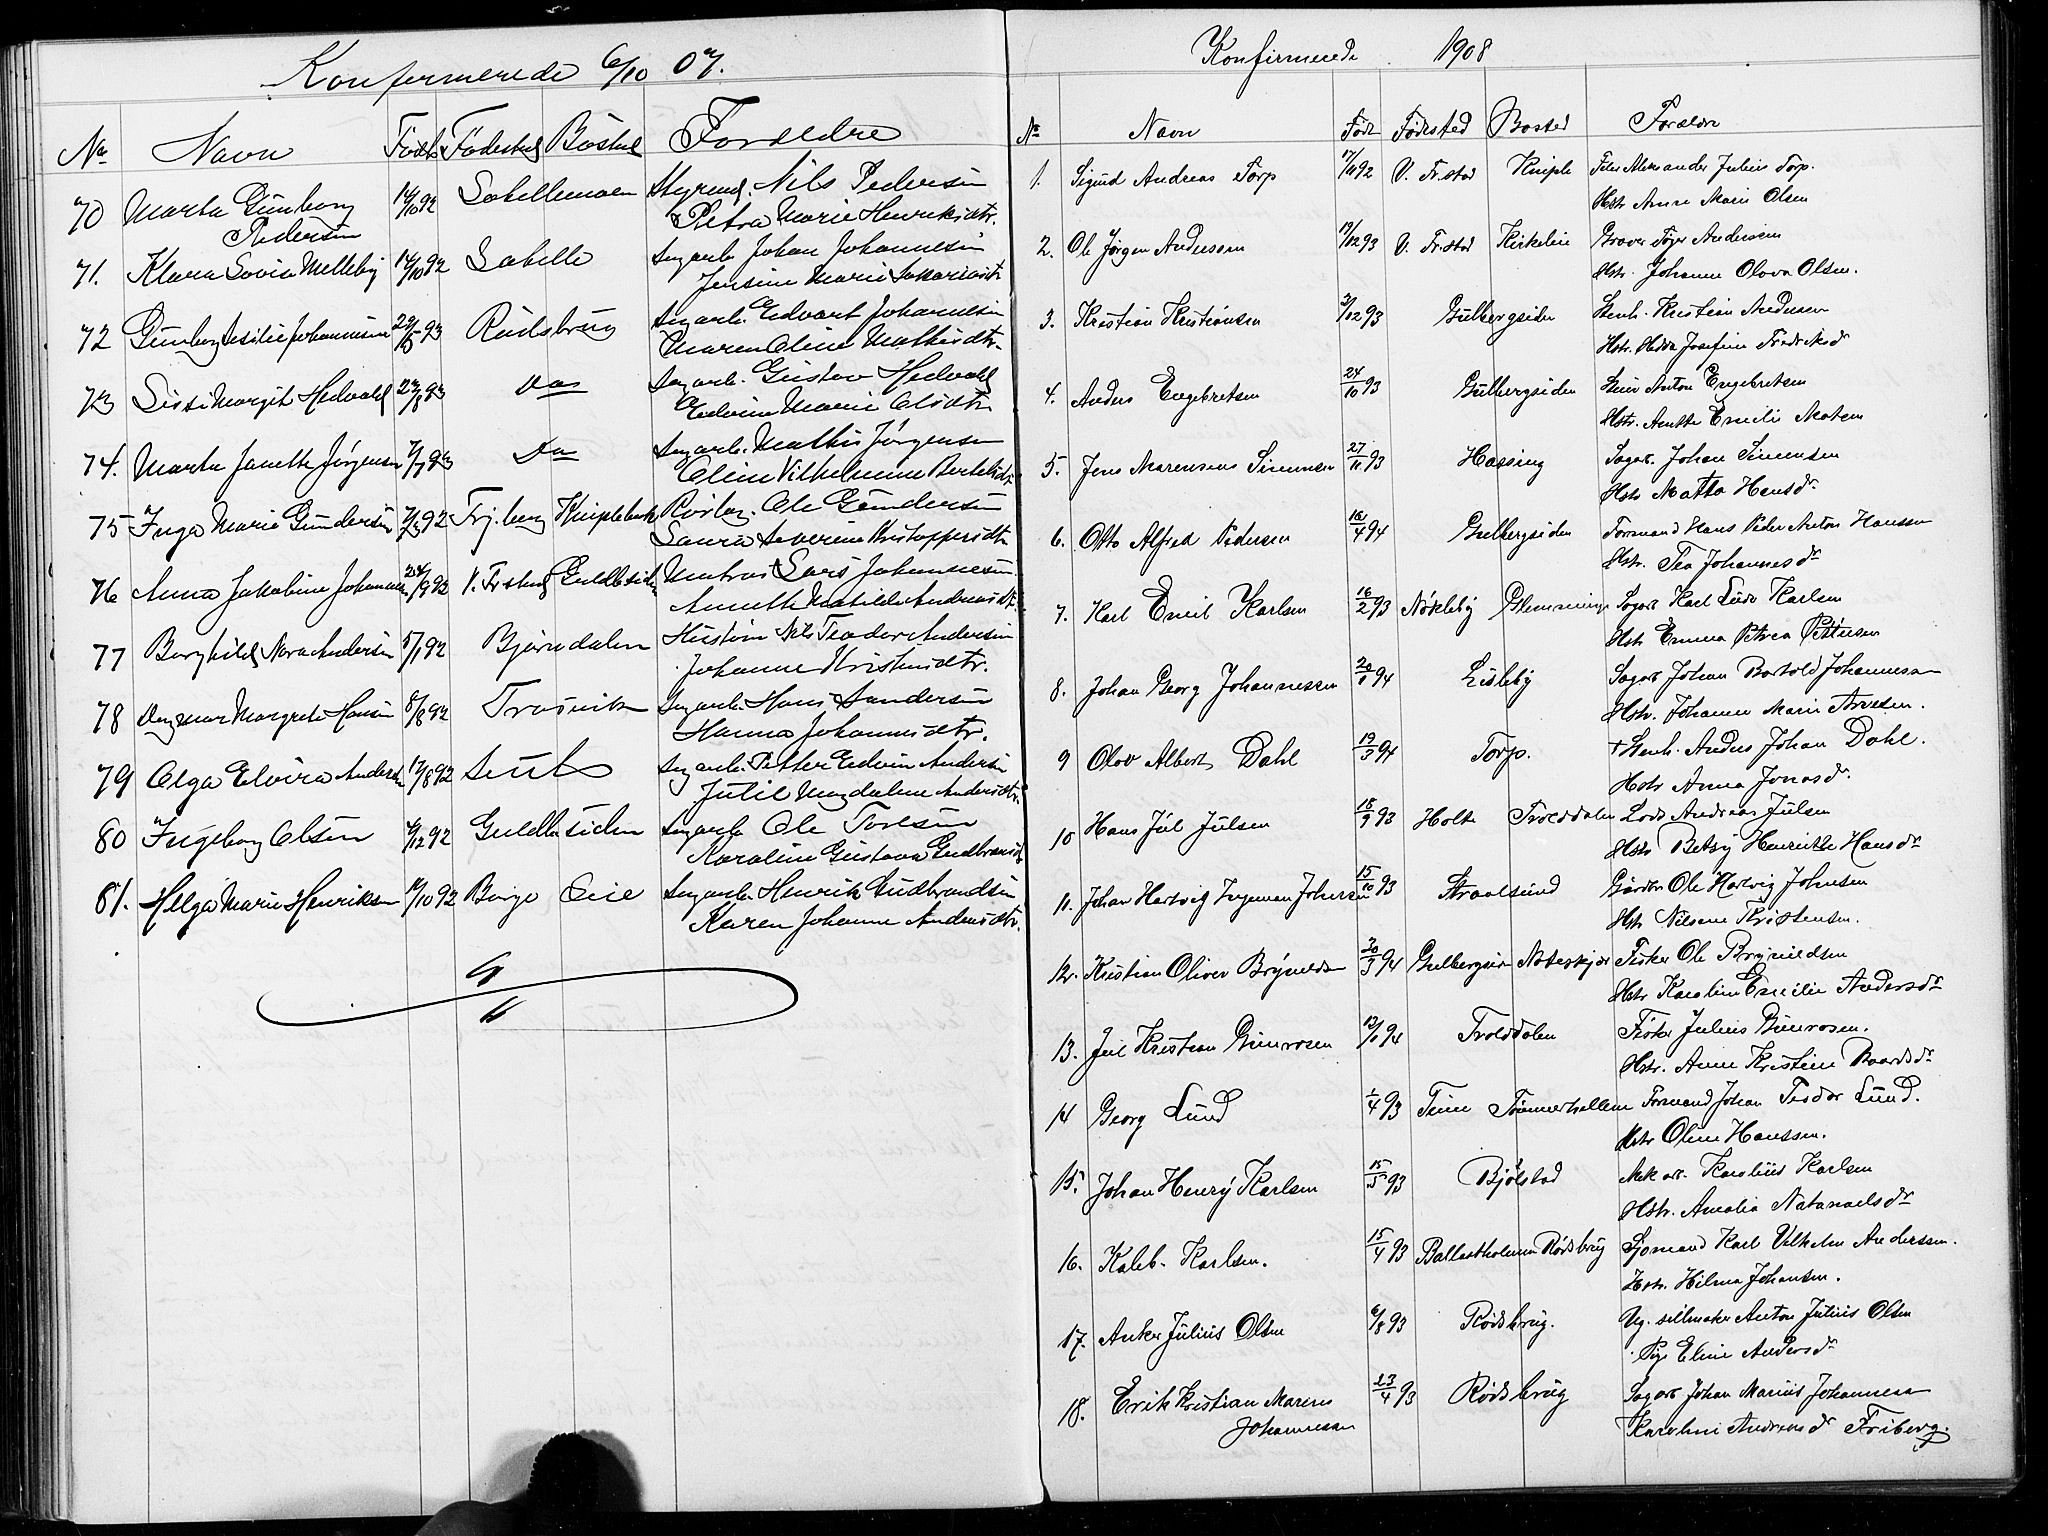 Konfirmerede 6/10 07.
No Navn Födt Födested Bosted Foreldre
70 Marta Gunborg 14/10 92 Labellemoen Styrmd. Nils Pedersen
Pedersen Petra Marie Henriksdtr.
71. Klara Lovise Melleby 14/10 92 Labelle Sagarb. Johan Johannesen
Jensine Marie
72 Gunborg Johannesen 93 Rødsbrug Sagarb. Edvart Johannesen
Maren Oline Mathisdtr.
73 Margit Hedvald 93 Do Sagarb. Gustav Hedvald
Edvine Marie Olsdtr.
74. Marta Janette Jörgensen 7/7 93 Do Sagarb. Mathis Jörgensen
Oline Vilhelmine Bertelsdtr.
75 Inga Marie Gundersen 92 Ole Gundersen
Laura Severine Kristoffersdtr.
76 Anna Jakobine Johannesen 9 92 V. Fr.stad Guldb.siden Matros Lars Johannesen
Annette Matilde Andreasdtr.
77 Borghild Nora Andersen 92 Björndalen Nils Teodor Andersen
Johanne Kristiansdtr.
78 Dagmar Margrete Hansen 8/8 92 Trosvik Sagarb. Hans Sandersen
Hanna Johannesdtr.
79 Olga Elvira Andersen 17/8 92 Sagarb. Petter Edvin Andersen
Julie Magdalene Andersdtr.
80 Ingeborg Olsen 12 92 Guldb.siden Sagarb. Ole Toresen
Karoline Gustava Gudbrandsd.
81. Helga Marie Henriksen 10 92 Borge Sagarb. Henrik Gudbrandsen
Karen Johanne Andersdtr.
Konfirmerede 1908
No Navn Født Fødested Bosted Forældre
1. Sigurd Andreas Torp 92 V. Fr.stad Kniple Alexander Julius Torp.
Hstr. Anne Marie Olsen
2. Ole Jørgen Anderssen 17/12 93 V. Fr.stad Kirkelie Andersen
Hstr. Johanne Olava Olsen.
3. Kristian Kristiansen 12 93 Gulbergsiden Stenh. Kristian Andersen
Hstr. Josefine Fredriksd
4. Anders Engebretsen 24/10 93 Gulbergsiden Anton Engebretsen
Hstr. Anette Emilie
5. Jens Marensius Simensen 27/11 93 Hassing Sagarb. Johan Simensen
Hstr. Hansdr.
6. Otto Alfred Pedersen 16/4 94 Gulbergsiden Formand Hans Peder Anton Hanssen
Hstr. Tea Johannesdr
7. Karl Emil Karlsen 16/2 93 Nökleby Glemminge Sagarb Karl Karlsen
Hstr Emma Petrea Pettersen
8. Johan Georg Johannessen 20/1 94 Lisleby Sagarb Johan Bartold Johannessen
Hstr. Johanne Marie
9 Olov Albert Dahl 19/3 94 Torp. † Stenh. Anders Johan Dahl.
Hstr Anna Jonasdr.
10 Hans Jul Julsen 18/9 93 Holte Trolddalen Lods Andreas Julsen
Hstr Betsy Henriette Hansdr
11. Johan Hartvig Ingeman Johnsen 15/10 93 Stralsund Gårdbr. Ole Hartvig Johnsen
Hstr Nilsene Kristensen.
12. Kristian Oliver Brynildsen 20/3 94 Gulbergsiden Fisker Ole Brynildsen
Hstr Karoline Emilie Andersdr
13. Juel Kristian Bunrosen 13/1 94 Trolddalen Fisker Julius Bunrosen.
Hstr. Anne Kristine Baardsdr
14 Georg Lund 1/4 93 Tune Formand Johan Teodor Lund.
Hstr Oline Hanssen.
15. Johan Henry Karlsen 15/5 93 Bjölstad Mek. arb. Karolius Karlsen
Hstr. Amalia Natanaelsdr
16. Kaleb. Karlsen. 15/4 93 Ballastholmen Rødsbrug Sjømand Karl Vilhelm Anderssen.
Hstr. Hilma Johansen.
17. Anker Julius Olsen 6/8 93 Rødsbrug. Ug. Anton Julius Olsen
Pige Eline Andersdr
18. Erik Kristian Marius 23/4 93 Rødsbrug Sagarb Johan Marius Johannessen
Johannessen Karoline Andreasdr Friberg.